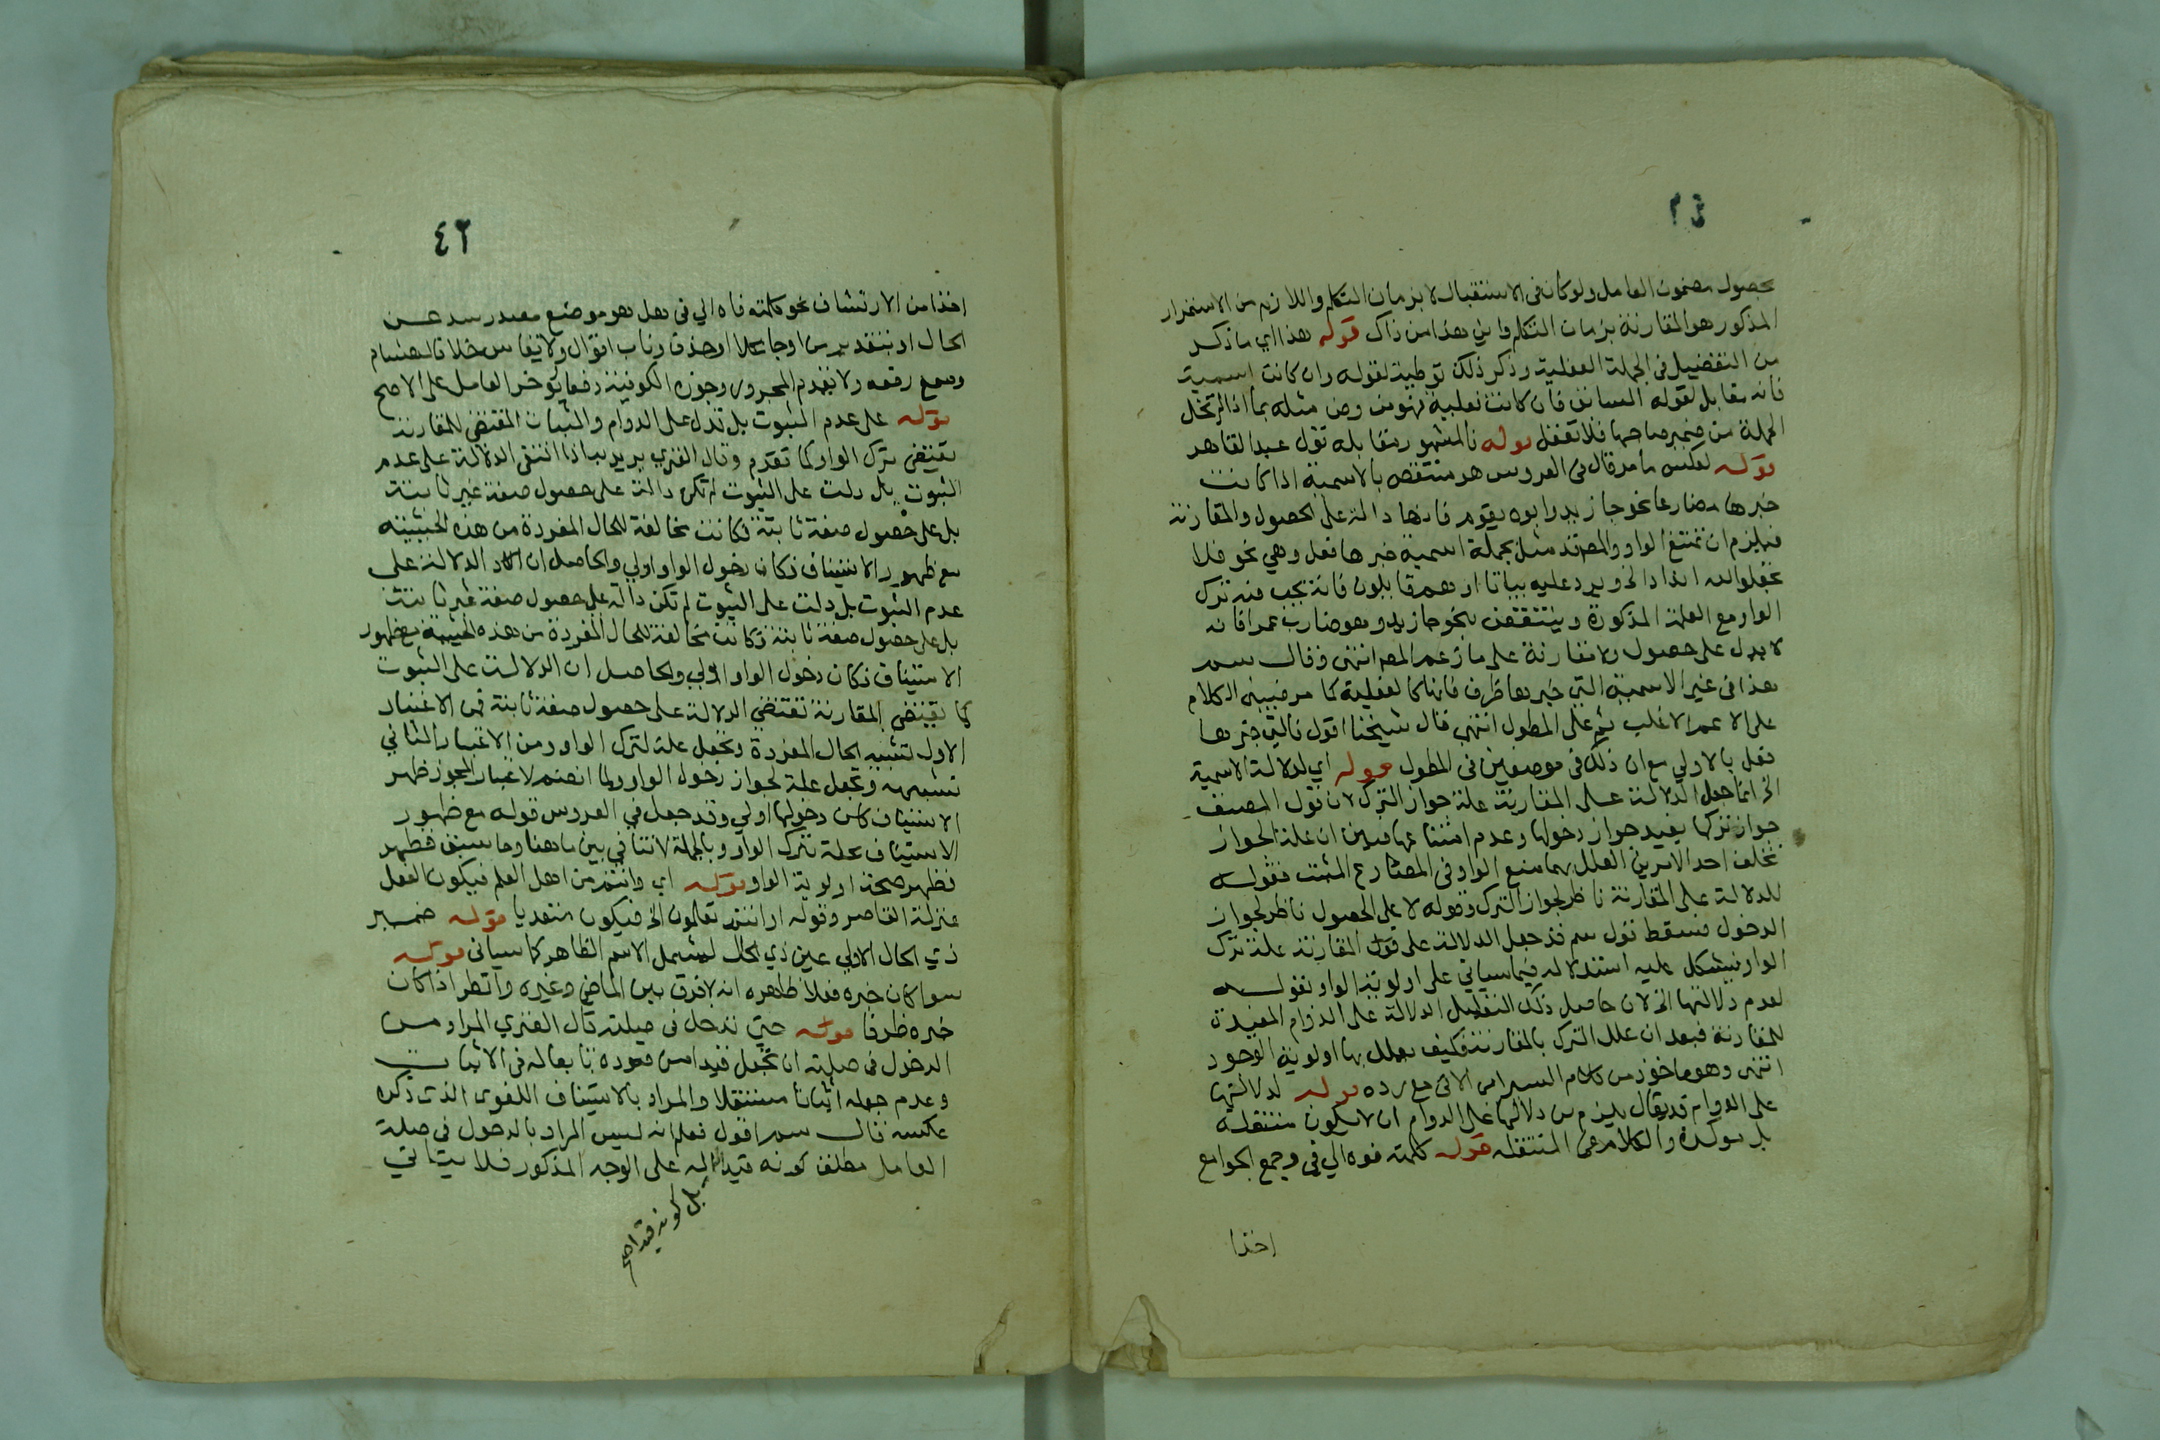 بحصول مضمون العامل ولو كان في الاستقبال لا بزمان التكلم واللازم من الاستمرار
المذكور هو المقارنة بزمان التكلم واين هذا من ذاك قوله هذا اي ما ذكر
من التفضيل في الجملة الفعلية وذكر ذلك توطية لقوله وان كانت اسمية
فانه مقابل لقوله السابق فان كانت فعلية
الجملة من ضمير صاحبها فلا تغفل قوله فالمشهور مقابله قول عبد القاهر
قوله لعكس ما مر قال في العروس هو منتقض بالاسمية اذا كانت
خبرها مضارعا نحو جا زيد وابوه يقوم فانها دالة على الحصول والمقارنة
فيلزم ان تمتنع الواو والمص قد مثل بجملة اسمية خبرها فعل وهي نحو فلا
تجعلوا لله اندادا الخ ويرد عليه بياتا او هم قايلون فانه يجب فيه ترك
الواو مع العلة المذكورة وينتقض بنحو جا زيد وهو ضارب عمرا فانه
لا يدل على حصول ولا مقارنة على ما زعم المص انتهى وقال سم
هذا في غير الاسمية التي خبرها ظرف فانها كالفعلية كما
على الاعم الاغلب ثم على المطول انتهى قال شيخنا اقول فالتي خبرها
فعل بالاولي مع ان ذلك في موضعين في المطول قوله اي لدلالة الاسمية
الخ انما جعل الدلالة على المقارنة علة جواز الترك لان قول المصنف
جواز تركها يفيد جواز دخولها وعدم امتناعها فبين ان علة الجواز
تخلف احد الامرين المعلل بهما منع الواو في المضارع المثبت فقوله
للدلالة على المقارنة ناظر لجواز الترك وقوله لا على الحصول ناظر لجواز
الدخول فسقط قول سم قد جعل الدلالة على المقارنة علة ترك
الواو فيشكل عليه استدلاله فيما سياتي على اولوية الواو بقوله
لعدم دلالتها الخ لان حاصل ذلك التعليل الدلالة على الدوام المفيدة
للمقارنة فبعد ان علل الترك بالمقارنة فكيف يعلل بها اولوية الوجود
انتهى وهو ماخوذ من كلام السيرامي الاتي مع رده قوله لدلالتها
على الدوام قد يقال يلزم من دلالتها على الدوام ان لا تكون منتقلة
بل موكدة والكلام في المنتقلة قوله كلمته فوه الي في وجمع الجوامع
اخذا
٤٢
اخذا من الارتشاف نحو كلمته فاه الي في هل هو موضع مصدر سد عن
الحال او بتقدير من او جاعلا او حذف وناب اقوال ولا يقاس خلافا لهشام
وسمع رفعه ولا يقدم المجرور وجوزه الكوفية رفعا يؤخر العامل على الاصح
قوله على عدم الثبوت بل تدل على الدوام والثبات المقتضي للمقارنة
يقتضي ترك الواو كما تقدم وقال الفنري يريد بهذا انتفى الدلالة على عدم
الثبوت بل دلت على الثبوت لم تكن دالة على حصول صفة غير ثابتة
بل على حصول صفة ثابتة فكانت مخالفة للحال المفردة من هذه الحيثية
مع ظهور الاستيناف فكان دخول الواو اولي والحاصل ان الدلالة على
عدم الثبوت بل دلت على الثبوت لم تكن دالة على حصول صفة غير ثابتة
بل على حصول صفة ثابتة فكانت مخالفة للحال المفردة من هذه الحيثية مع ظهور
الاستيناف فكان دخول الواو اولي والحاصل ان الدلالة على الثبوت
كما يقتضي المقارنة تقتضي الدلالة على حصول صفة ثابتة فمن الاعتبار
الاول لتشبيه الحال المفردة وتجعل علة لترك الواو ومن الاعتبار الثاني
تشبهه وتجعل علة لجواز دخول الواو ولما انضم لاعتبار المجوز ظهر
الاستيناف كان دخولها اولي وقد جعل في العروس قوله مع ظهور
الاستيناف علة ترك الواو وبالجملة لا تنافي بين ما هنا وما سبق فظهر
فظهر صحة اولوية الواو قوله اي وانتم من اهل العلم فيكون الفعل
بمنزلة القاصر وقوله او انتم تعلمون الخ فيكون متعديا قوله ضمير
ذي الحال الاولي عين ذي الحال ليشمل الاسم الظاهر كما سياتي قوله
سوا كان خبره فعلا ظاهره انه لا فرق بين الماضي وغيره وانظر اذا كان
خبره ظرفا قوله حتى تدخل في صلته قال الفنري المراد من
الدخول في صلته ان تجعل قيدا من قيوده تابعا له في الاثبات
وعدم جعله اثباتا مستقلا والمراد بالاستيناف اللغوي الذي ذكره
عكسه قال سم اقول فعلم انه ليس المراد بالدخول في صلة
العامل مطلق كونه قيدا له على الوجه المذكور فلا يتاتي
بل كونه قيدا صح